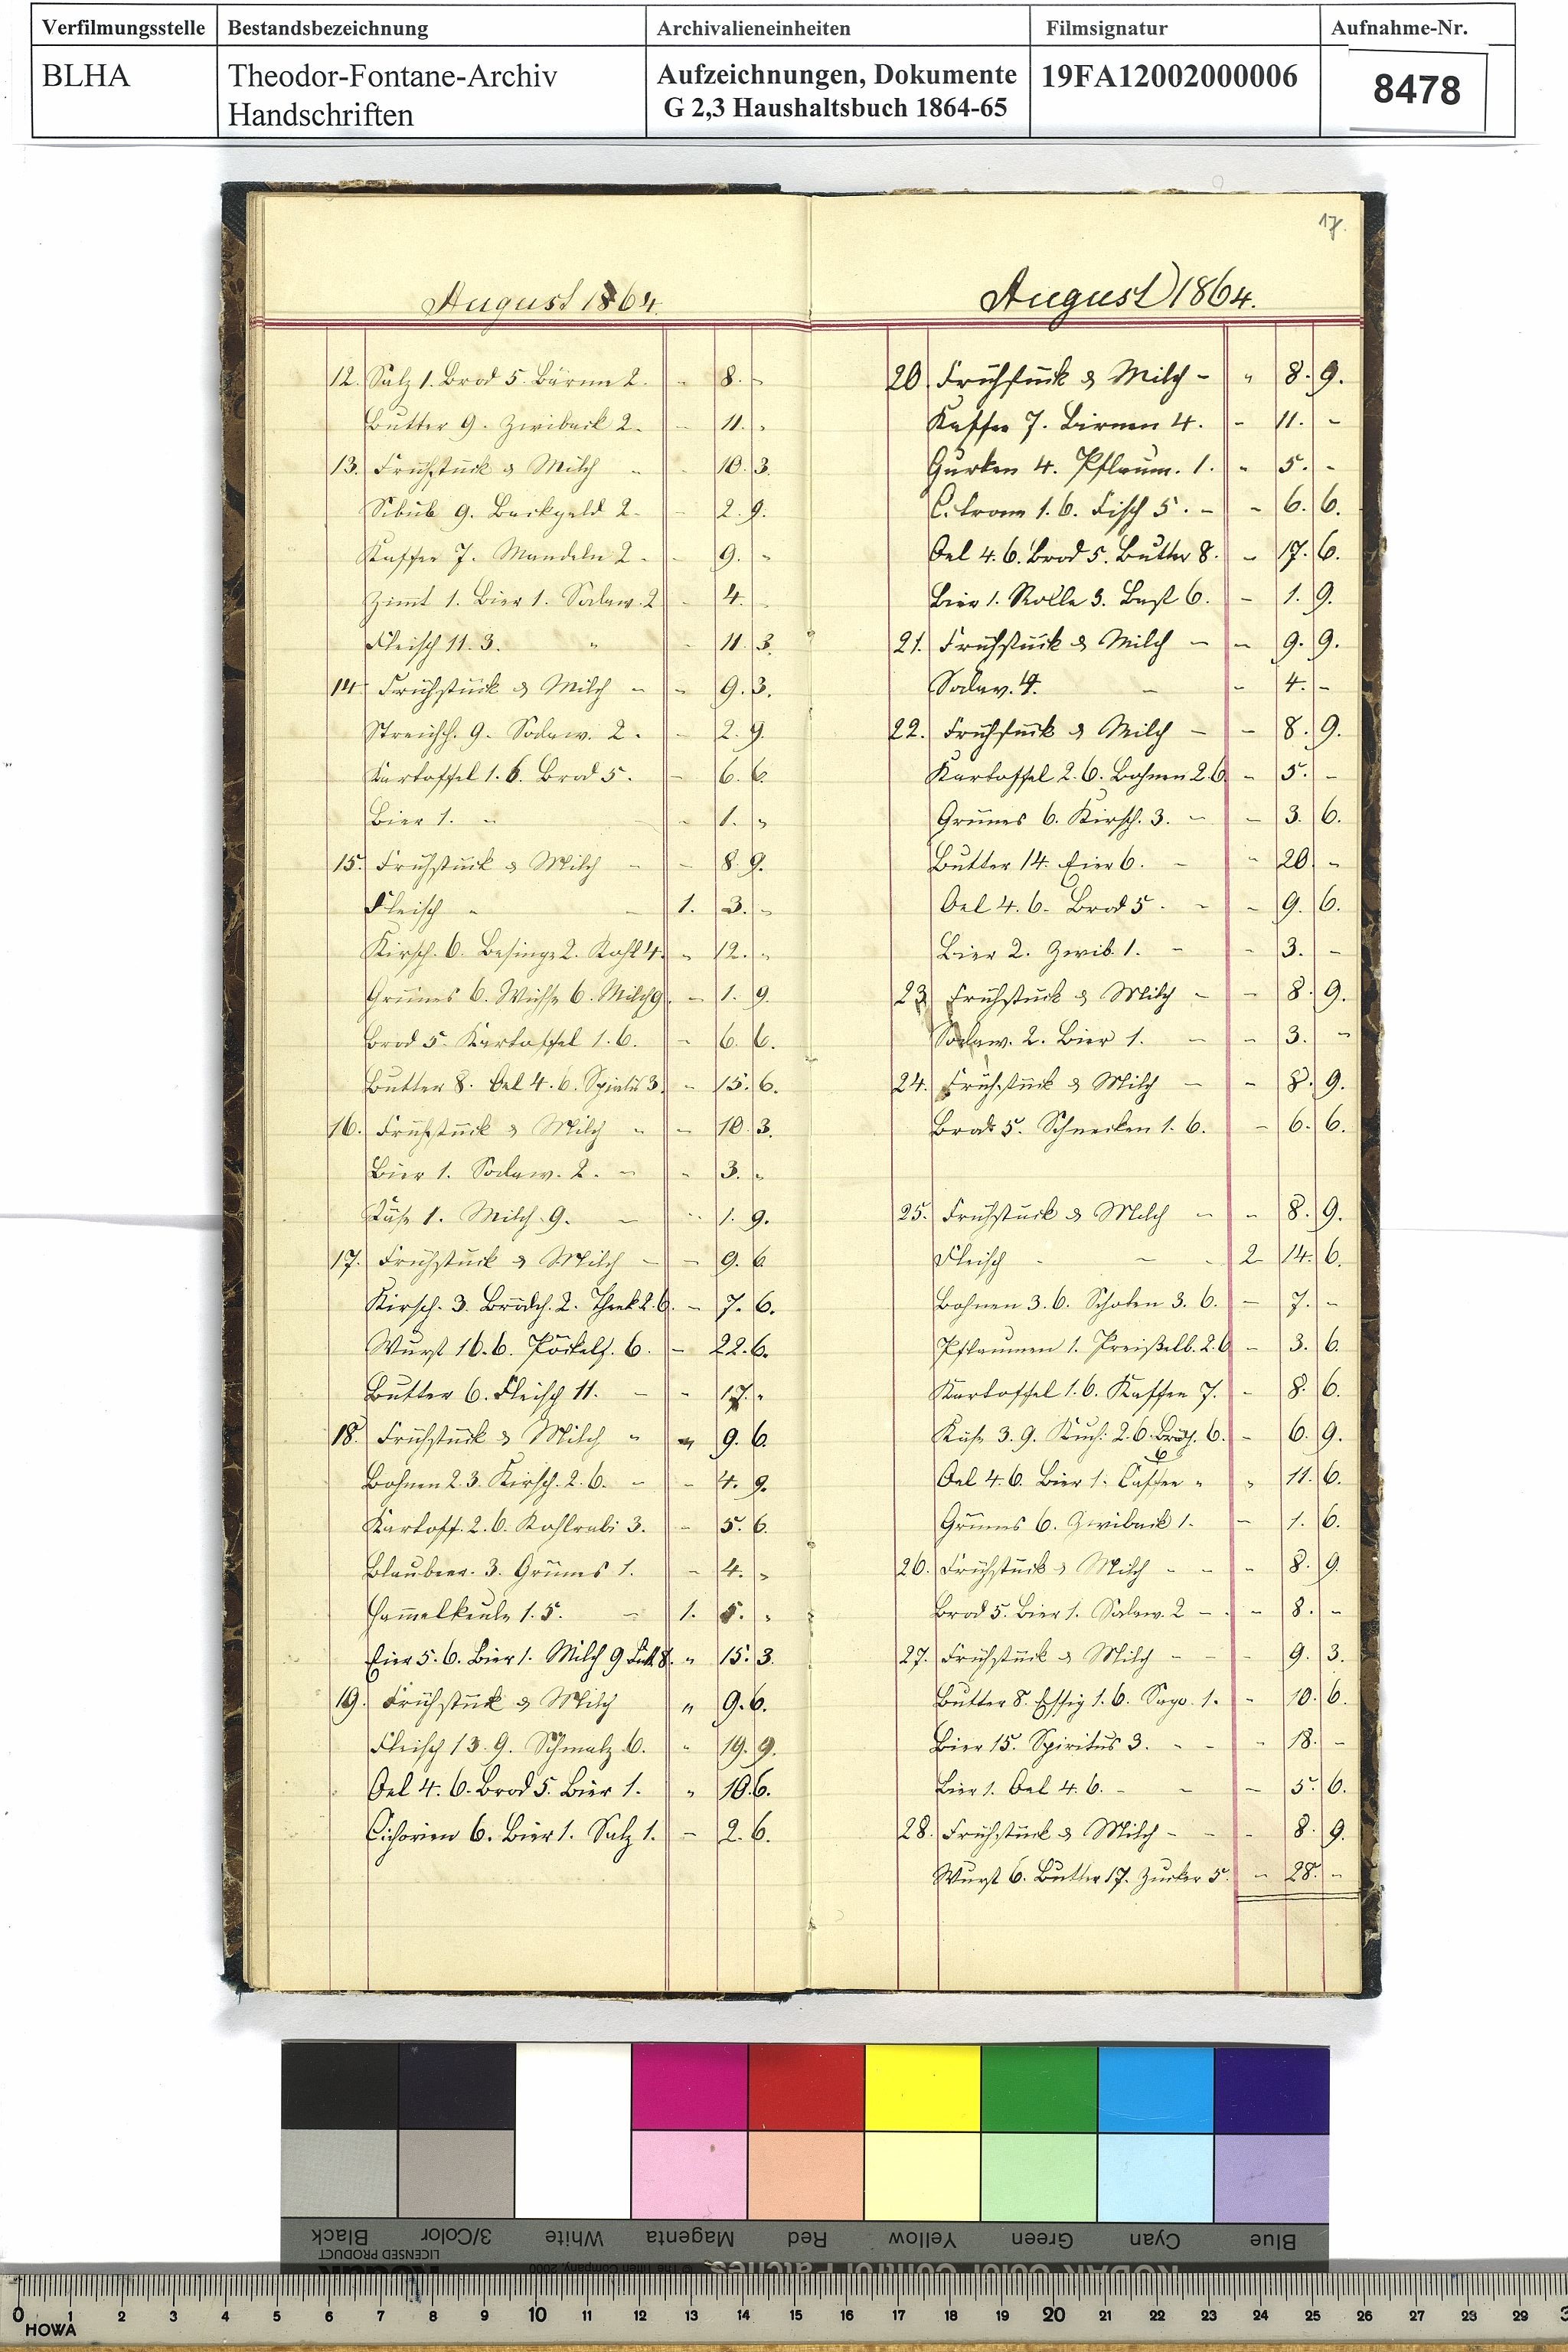 Verfilmungsstelle Bestandsbezeichnung Archivalieneinheiten Filmsignatur Aufnahme-Nr.
BLHA Theodor-Fontane-Archiv Aufzeichnungen, Dokumente 19FA12002000006 8478
Handschriften G 2,3 Haushaltsbuch 1864-65
August 1864.
12. Salz 1. Brod 5. Bärme 2. - 8. -
Butter 9. Zwiback 2. - 11. -
13. Frühstück & Milch - - 10. 3.
9. Backgeld 2. - 2. 9.
Kaffee 7. Mandeln 2. - 9. -
Zimt 1. Bier 1. Sodaw. 2 - 4. -
Fleisch 11. 3. " - 11. 3.
14 Frühstück & Milch - - 9. 3.
Streichh. 9. Sodaw. 2. - 2. 9.
Kartoffel 1. 6. Brod 5. - 6. 6.
Bier 1. - - 1. -
15. Frühstück & Milch - - 8. 9.
Fleisch - - 1. 3. -
Kirsch. 6. Besinge 2. Kohl 4. - 12. -
Grünes 6. Wichse 6. Milch 9. - 1. 9.
Brod 5. Kartoffel 1. 6. - 6. 6.
Butter 8. Oel 4. 6. Spiritu 3. - 15. 6.
16. Frühstück & Milch - - 10. 3.
Bier 1. Sodaw. 2. - - 3. -
Käse 1. Milch 9. - - 1. 9.
17. Frühstück & Milch - - 9. 6
Kirsch. 3. Brödch. 2. 2. 6. - 7. 6.
Wurst 16. 6. Pöckelf. 6. - 22. 6.
Butter 6. Fleisch 11. - - 17. -
18. Frühstück & Milch - - 9. 6.
Bohnen 2. 3. Kirsch. 2. 6. - - 4. 9.
Kartoff. 2. 6. Kohlrabi 3. - 5. 6.
Blaubeer. 3. Grünes 1. - 4. -
Hammelkeule 1. 5. - 1. 5. -
Eier 5. 6. Bier 1. Milch 9 Butt. 8. " 15. 3.
19. Frühstück & Milch " 9. 6.
Fleisch 13. 9. Schmalz 6. " 19. 9.
Oel 4. 6. Brod 5. Bier 1. " 10. 6.
Cichorien 6. Bier 1. Salz 1. - 2. 6.
17.
August 1864.
20. Frühstück & Milch - " 8. 9.
Kaffee 7. Birnen 4. - 11. -
Gurken 4. Pflaum. 1. - 5. -
Citrone 1. 6. Fisch 5. - - 6. 6.
Oel 4. 6. Brod 5. Butter 8. - 17. 6.
Bier 1. Rolle 3. Bast 6. - 1. 9.
21. Frühstück & Milch - - 9. 9.
Sodaw. 4. - - 4. -
22. Frühstück & Milch - - 8. 9.
Kartoffel 2. 6. Bohnen 2. 6 - 5. -
Grünes 6. Kirsch. 3. - - 3. 6.
Butter 14. Eier 6. - " 20. -
Oel 4. 6. Brod 5. - - 9. 6.
Bier 2. Zwib. 1. - - 3. -
23 Frühstück & Milch - - 8. 9.
Sodaw. 2. Bier 1. - - 3. -
24. Frühstück & Milch - - 8. 9.
Brod 5. Schnecken 1. 6. - 6. 6.
25. Frühstück & Milch - - 8. 9.
Fleisch - - - 2 14. 6.
Bohnen 3. 6. Schoten 3. 6. - 7. -
Pflaumen 1. Preißelb. 2. 6 - 3. 6.
Kartoffel 1. 6. Kaffee 7. - 8. 6.
Käse 3. 9. Kuch. 2. 6. Brödch. 6. - 6. 9.
Oel 4. 6. Bier 1. Caffee 6 " " 11. 6.
Grünes 6. Zwiback 1. - 1. 6.
26. Frühstück & Milch - - - 8. 9.
Brod 5. Bier 1. Sodaw. 2 - - 8. -
27. Frühstück & Milch - - - 9. 3.
Butter 8. Essig 1. 6. Sago 1. - 10. 6.
Bier 15. Spiritus 3. - - - 18. -
Bier 1. Oel 4. 6. - - - 5. 6.
28. Frühstück & Milch - - - 8. 9.
Wurst 6. Butter 17. Zucker 5. - 28. -
Black 3/Color White Magenta Red Yellow Green Cyan Blue
Kodak LICENSED PRODUCT © The Tiffen Company, 2000 KODAK Color Control Patches
0 1 2 3 4 5 6 7 8 9 10 11 12 13 14 15 16 17 18 19 20 21 22 23 24 25 26 27 28 29 3
HOWA